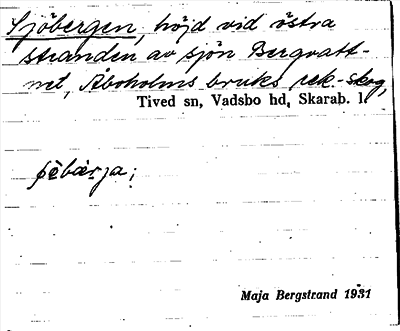 Sjöbergen, höjd vid östra
stranden av sjön Bergvatt-
net, Åboholms bruks rek.-skog,
Tived sn, Vadsbo hd, Skarab. l.
ʃèbærja;
Maja Bergstrand 1931